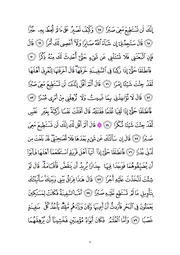 إِنَّكَ لَن تَسْتَطِيعَ مَعِيَ صَبْرًا ﴿٦٧﴾ وَكَيْفَ تَصْبِرُ عَلَىٰ مَا لَمْ تُحِطْ بِهِ خُبْرًا
﴿٦٨﴾ قَالَ سَتَجِدُنِي إِن شَاءَ اللَّهُ صَابِرًا وَلَا أَعْصِي لَكَ أَمْرًا ﴿٦٩﴾ قَالَ
فَإِنِ اتَّبَعْتَنِي فَلَا تَسْأَلْنِي عَن شَيْءٍ حَتَّىٰ أُحْدِثَ لَكَ مِنْهُ ذِكْرًا ﴿٧٠﴾
فَانطَلَقَا حَتَّىٰ إِذَا رَكِبَا فِي السَّفِينَةِ خَرَقَهَا قَالَ أَخَرَقْتَهَا لِتُغْرِقَ أَهْلَهَا
لَقَدْ جِئْتَ شَيْئًا إِمْرًا ﴿٧١﴾ قَالَ أَلَمْ أَقُلْ إِنَّكَ لَن تَسْتَطِيعَ مَعِيَ صَبْرًا
﴿٧٢﴾ قَالَ لَا تُؤَاخِذْنِي بِمَا نَسِيتُ وَلَا تُرْهِقْنِي مِنْ أَمْرِي عُسْرًا ﴿٧٣﴾
فَانطَلَقَا حَتَّىٰ إِذَا لَقِيَا غُلَامًا فَقَتَلَهُ قَالَ أَقَتَلْتَ نَفْسًا زَكِيَّةً بِغَيْرِ نَفْسٍ
لَّقَدْ جِئْتَ شَيْئًا نُّكْرًا ﴿٧٤﴾ قَالَ أَلَمْ أَقُل لَّكَ إِنَّكَ لَن تَسْتَطِيعَ مَعِيَ
صَبْرًا ﴿٧٥﴾ قَالَ إِن سَأَلْتُكَ عَن شَيْءٍ بَعْدَهَا فَلَا تُصَاحِبْنِي قَدْ بَلَغْتَ مِن
لَّدُنِّي عُذْرًا ﴿٧٦﴾ فَانطَلَقَا حَتَّىٰ إِذَا أَتَيَا أَهْلَ قَرْيَةٍ اسْتَطْعَمَا أَهْلَهَا فَأَبَوْا
أَن يُضَيِّفُوهُمَا فَوَجَدَا فِيهَا جِدَارًا يُرِيدُ أَن يَنقَضَّ فَأَقَامَهُ قَالَ لَوْ
شِئْتَ لَاتَّخَذْتَ عَلَيْهِ أَجْرًا ﴿٧٧﴾ قَالَ هَٰذَا فِرَاقُ بَيْنِي وَبَيْنِكَ سَأُنَبِّئُكَ
بِتَأْوِيلِ مَا لَمْ تَسْتَطِع عَّلَيْهِ صَبْرًا ﴿٧٨﴾ أَمَّا السَّفِينَةُ فَكَانَتْ لِمَسَاكِينَ
يَعْمَلُونَ فِي الْبَحْرِ فَأَرَدتُّ أَنْ أَعِيبَهَا وَكَانَ وَرَاءَهُم مَّلِكٌ يَأْخُذُ كُلَّ سَفِينَةٍ
غَصْبًا ﴿٧٩﴾ وَأَمَّا الْغُلَامُ فَكَانَ أَبَوَاهُ مُؤْمِنَيْنِ فَخَشِينَا أَن يُرْهِقَهُمَا